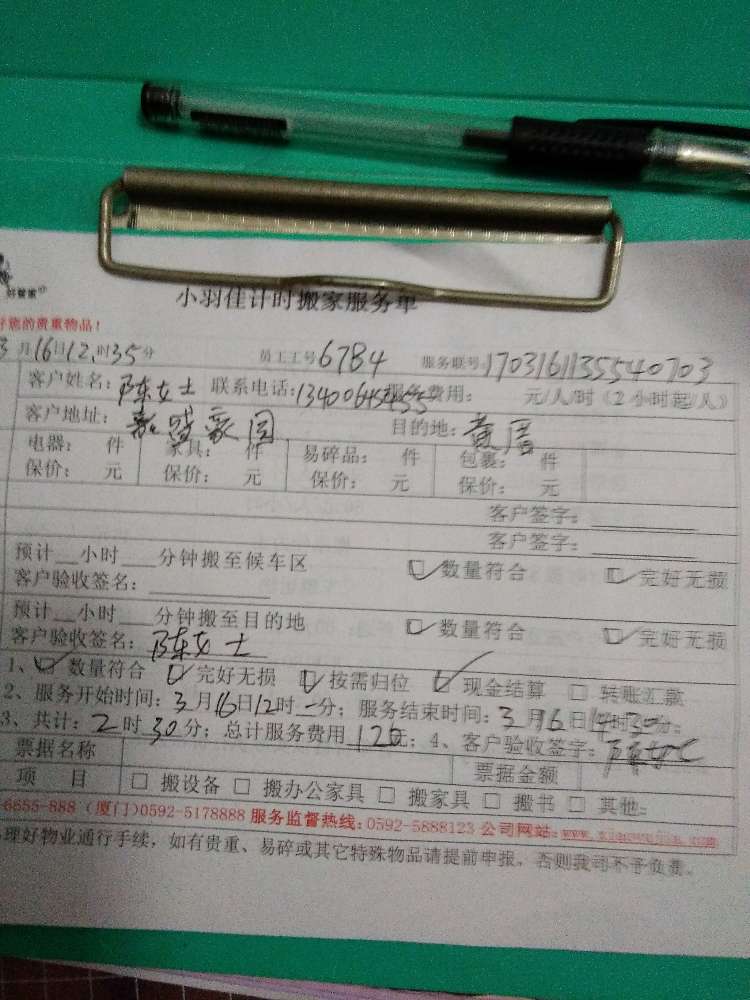 好管家
小羽佳计时搬家服务单
好施的贵重物品!
3月16日12时35分 员工工号6784 服务联号:1703161135540703
客户姓名:陈女士 联系电话: 服务费用: 元/人/时(2小时起/人)
客户地址: 家园 目的地:黄厝
电器: 件 家具: 件 易碎品: 件 包裹: 件
保价: 元 保价: 元 保价: 元 保价: 元
客户签字:
客户签字:
预计__小时___分钟搬至候车区 ☑数量符合 ☑完好无损
客户验收签名:
预计__小时___分钟搬至目的地 ☑数量符合 ☑完好无损
客户验收签名:陈女士
1、☑数量符合 ☑完好无损 ☑按需归位 ☑现金结算 □转账汇款
2、服务开始时间:3月16日12时一分;服务结束时间:3月16日14时30分。
3、共计:2时30分;总计服务费用 元;4、客户验收签字:陈女士
票据名称 票据金额
项 目 □搬设备 □搬办公家具 □搬家具 □搬书 □其他:
-6655-888(厦门)0592-5178888 服务监督热线:0592-5888123 公司网站:
理好物业通行手续,如有贵重、易碎或其它特殊物品请提前申报,否则我司不予负责。